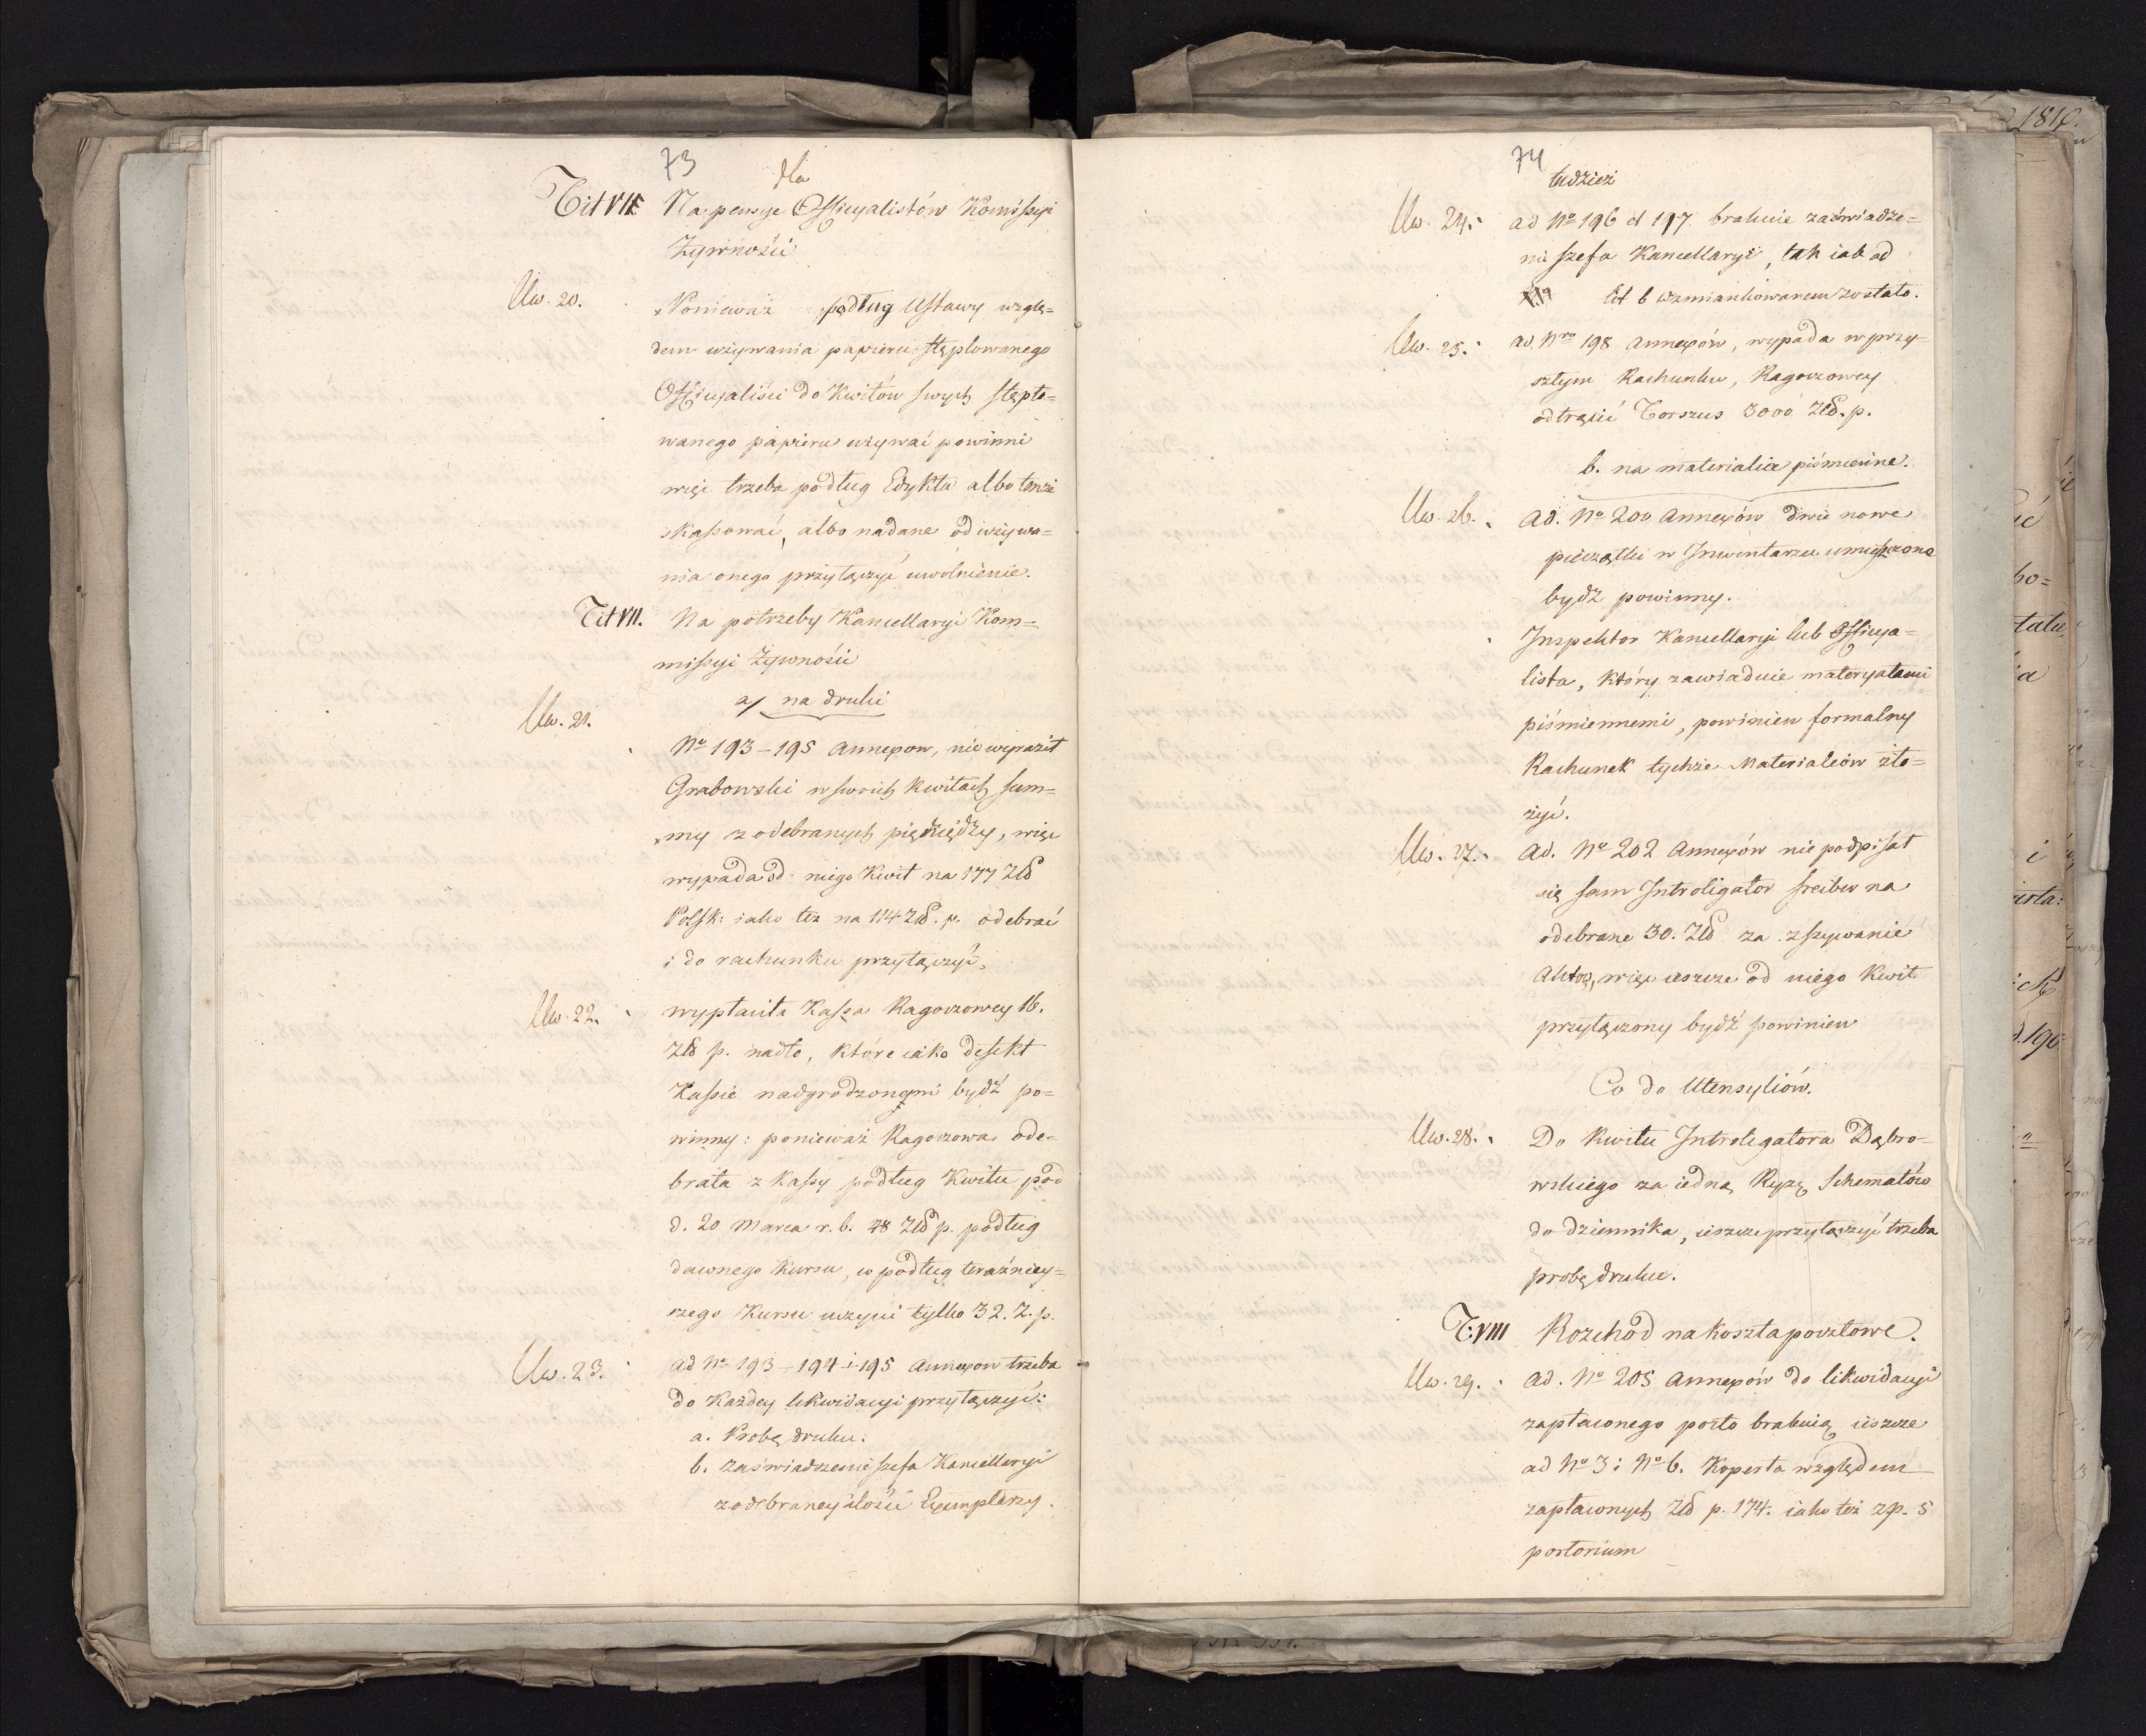 73
dla
Tit VII. Na pensye Officyalistów Komissyi
Żywności
Uw. 20.
Ponieważ podług Ustawy wzglę=
dem używania papieru stęplowanego
Officyaliści do Kwitów swych stęplo=
wanego papieru używać powinni
więc trzeba podług Edyktu albo tenże
skassować, albo nadane od używa=
nia onego przyłączyć uwolnienie.
Tit VII. Na potrzeby Kancellaryi Kom=
missyi Żywności
a/ na druki
Uw. 21.
No 193–195 Annexow, nie wyraził
Grabowski w swoich Kwitach sum=
my z odebranych pieniędzy, więc
wypada od niego Kwit na 177 Zł
Polsk: iako też na 114 Zł. p. odebrać
i do rachunku przyłączyć.
Uw. 22. wypłaciła Kassa Ragoczowey 16.
Zł p. nadto, które iako defekt
Kassie nadgrodzonemi bydź po=
winny: ponieważ Ragoczowa ode=
brała z Kassy podług Kwitu pod
d. 20 Marca r. b. 48 Zł p. podług
dawnego Kursu, w podług teraźniey=
szego Kursu uczyni tylko 32. Z. p.
Uw. 23. ad No 193 – 194 i 195 Annexow trzeba
do Każdey likwidacyi przyłączyć:
a. Probę druku.
b. Zaświadczenie szefa Kancellaryi
z odebraney ilości Exemplarzy.
74
tudzież
Uw. 24. ad No 196 et 197 brakuie zaświadcze=
nie szefa Kancellaryi, tak iak ad
lit b wzmiankowanem zostało.
Uw. 25. ad. Nro 198 Annexów, wypada w przy=
szłym Rachunku, Ragoczowey
odtrącić Vorszus 3000 Zł. p.
b. na materialia piśmienne.
Uw. 26. Ad. No 200 Annexów dwie nowe
pieczątki w Inwentarzu umieszczone
bydź powinny.
Inspektor Kancellaryi lub Officya=
lista, który zawiaduie materyałami
piśmiennemi, powinien formalny
Rachunek tychże Materialiów zło=
żyć.
Uw. 27. Ad. No 202 Annexów nie podpisał
się sam Introligator Sreiber na
odebrane 30. Zł za zszywanie
Aktow, więc ieszcze od niego Kwit
przyłączony bydź powinien
Co do Utensyliów.
Uw. 28. Do Kwitu Introligatora Dąbro=
wskiego za iedną Ryzę Schematów
do dziennika, ieszcze przyłączyć trzeba
probę druku.
T: VIII Rozchod na koszta pocztowe.
Uw. 29. Ad. No 205 Annexów do likwidacyi
zapłaconego porto brakuią ieszcze
ad No 3 i No 6. Koperta względem
zapłaconych Zł p. 174. iako też zp. 5
portorium